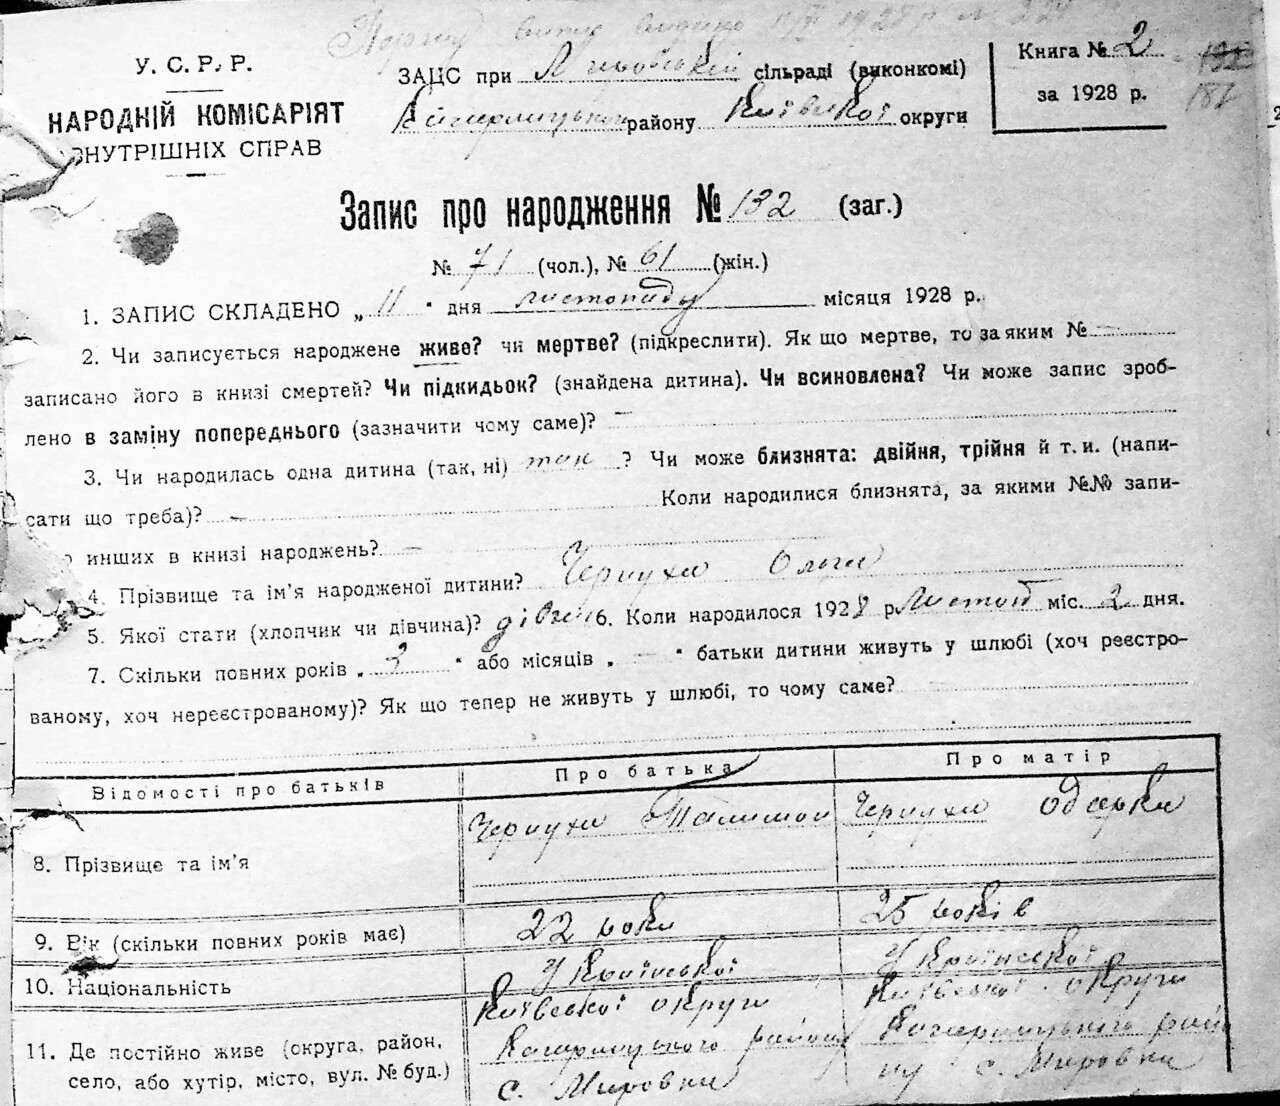 У. С. Р. Р.
НАРОДНІЙ КОМІСАРІЯТ
ВНУТРІШНІХ СПРАВ
ЗАЦС при сільраді (виконкомі)
Кагарлицького району Київської округи
Книга № 2
за 1928 р.
132
Запис про народження № 132 (заг.)
№ 71 (чол.), № 61 (жін.)
1. ЗАПИС СКЛАДЕНО „ 11 " дня листопаду місяця 1928 р.
2. Чи записується народжене живе? чи мертве? (підкреслити). Як що мертве, то за яким № —
записано його в книзі смертей? Чи підкидьок? (знайдена дитина). Чи всиновлена? Чи може запис зроб-
лено в заміну попереднього (зазначити чому саме)? —
3. Чи народилась одна дитина (так, ні) так ? Чи може близнята: двійня, трійня й т. и. (напи-
сати що треба)? — Коли народилися близнята, за якими №№ запи-
о инших в книзі народжень? —
4. Прізвище та ім'я народженої дитини? Чернуха Ольга
5. Якої стати (хлопчик чи дівчина)? 6. Коли народилося 1928 р. листоп міс. 2 дня.
7. Скільки повних років „ 3 " або місяців „ — " батьки дитини живуть у шлюбі (хоч реєстро-
ваному, хоч нереєстрованому)? Як що тепер не живуть у шлюбі, то чому саме?
Відомості про батьків Про батька Про матір
8. Прізвище та ім'я Чернуха Чернуха Одарка
9. Вік (скільки повних років має) 22 роки 25 років
10. Національність Української Української
11. Де постійно живе (округа, район, село, або хутір, місто, вул. № буд.)
Київської округи Кагарлицького району с. Мировки
Київської округи Кагарлицького райо ну с. Мировки